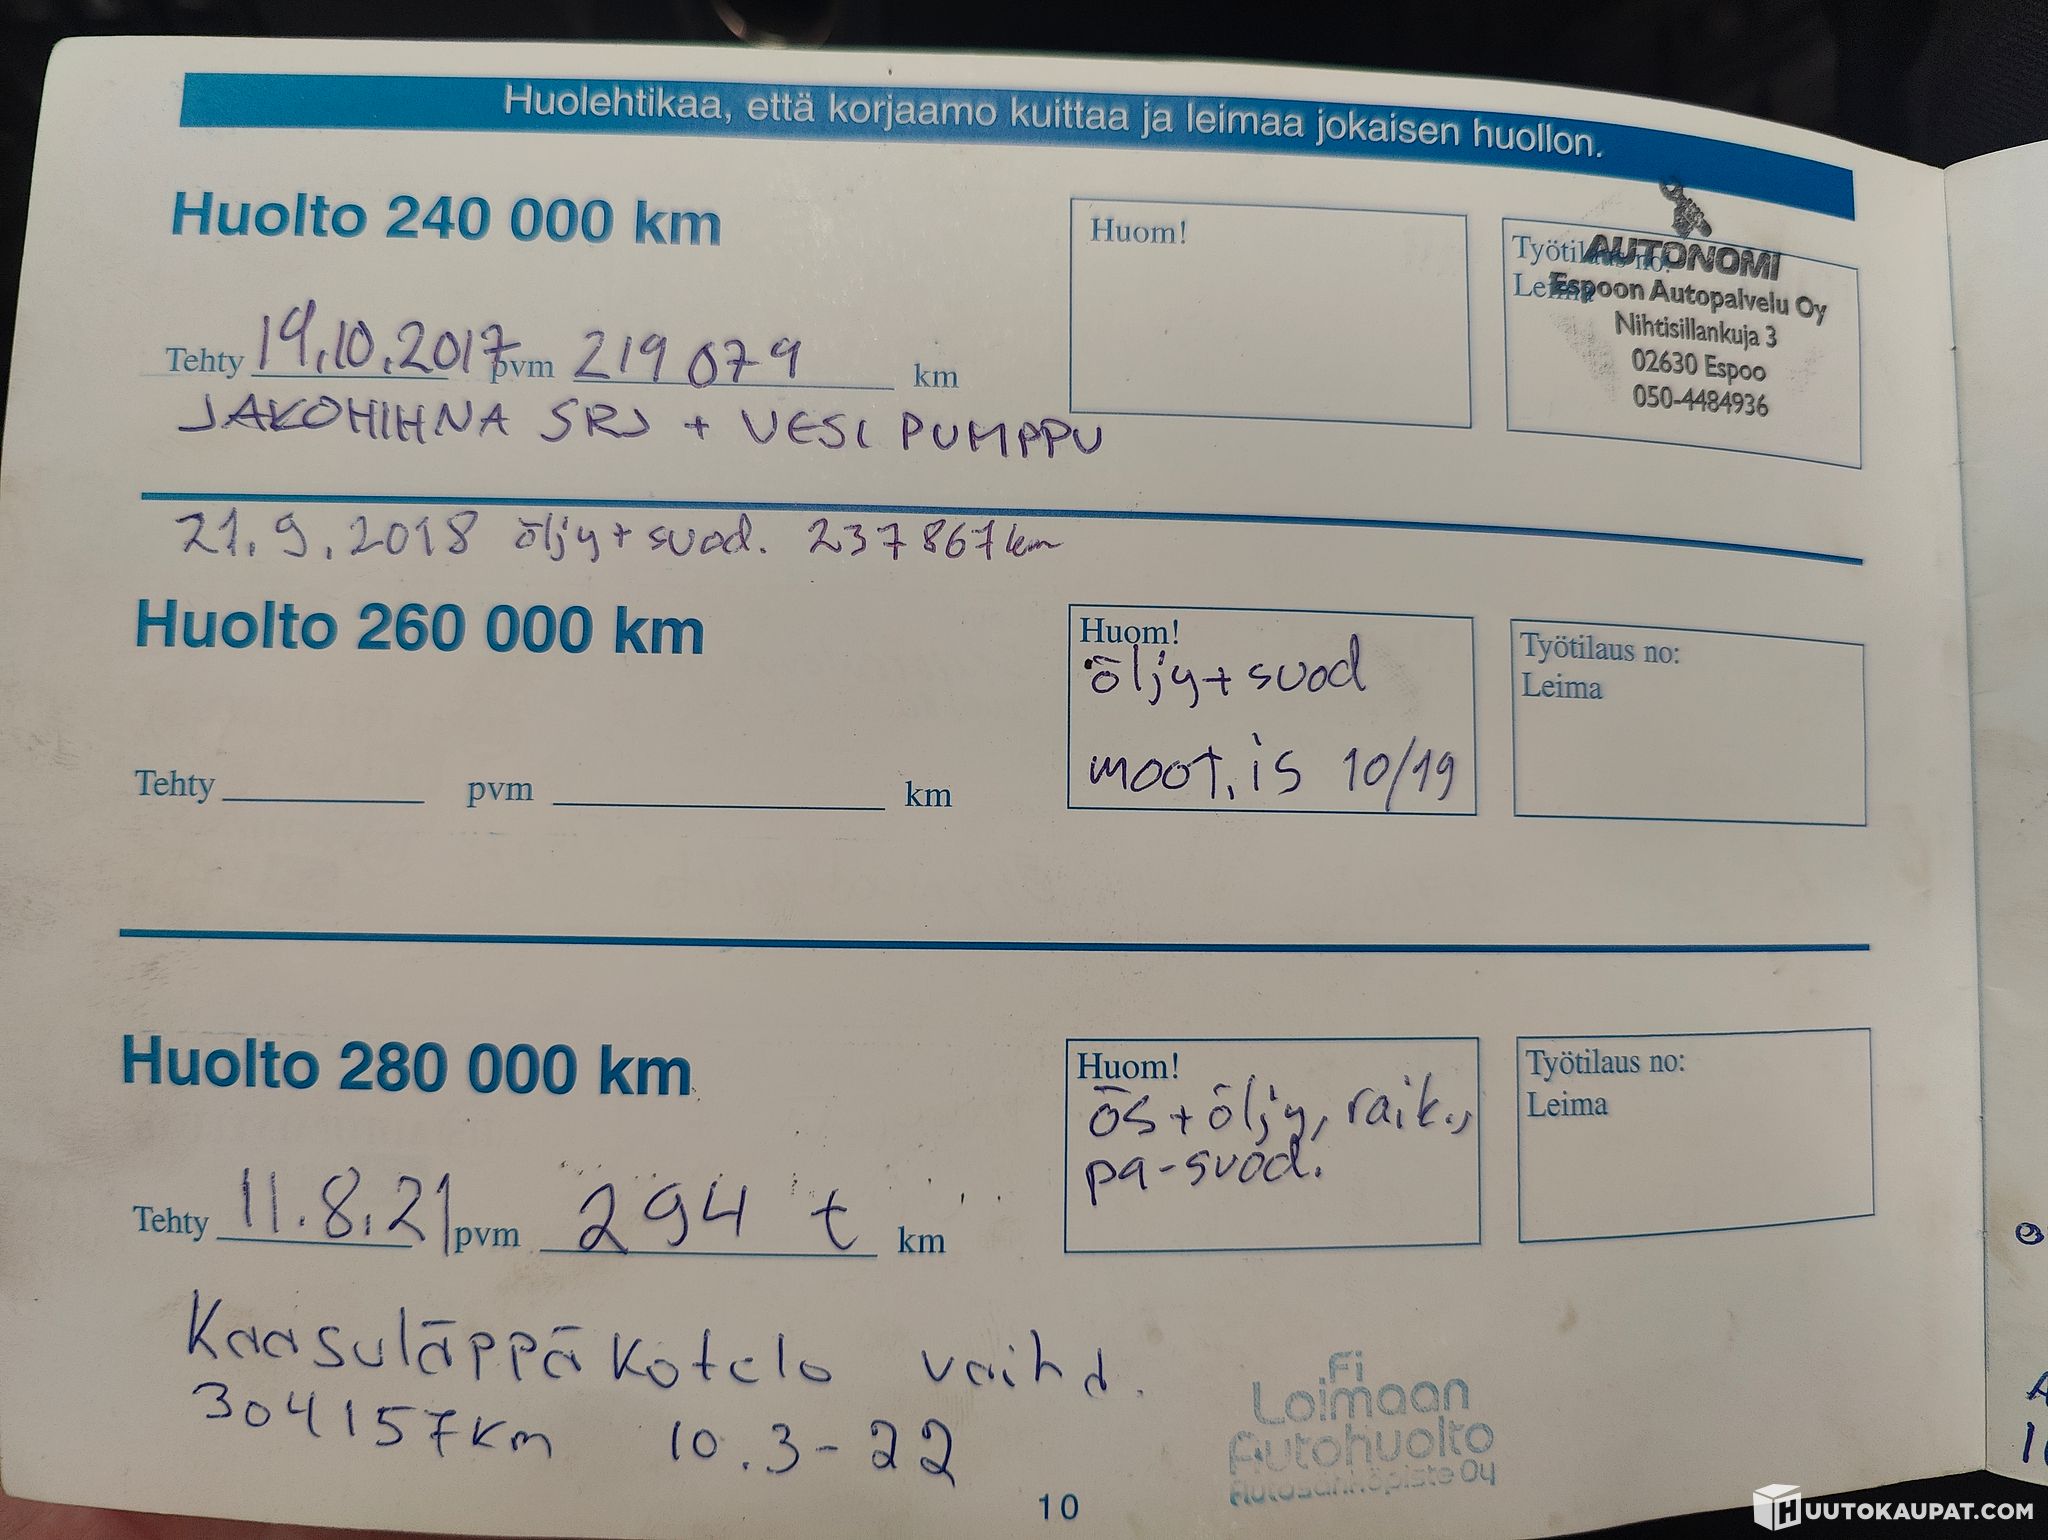 Huolehtikaa, että korjaamo kuittaa ja leimaa jokaisen huollon.
Huolto 240 000 km
Huom!
Työtilaus no:
Leima
AUTONOMI
Espoon Autopalvelu Oy
Nihtisillankuja 3
02630 Espoo
050-4484936
Tehty 19.10.2017 pvm 219 079 km
JAKOHIHNA SRJ + VESI PUMPPU
21.9.2018 öljy + suod. 237 867 km
Huolto 260 000 km
Huom!
öljy + suod
moot. is 10/19
Työtilaus no:
Leima
Tehty pvm km
Huolto 280 000 km
Huom!
ös + öljy, raik.,
pa-suod.
Työtilaus no:
Leima
Tehty 11.8.21 pvm 294 t km
Kaasuläppä kotelo vaihd.
304157 km 10.3-22
Fi
Loimaan
Autohuolto
Autosähköpiste Oy
10
HUUTOKAUPAT.COM